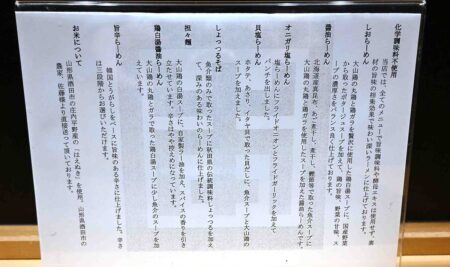 化学調味料不使用
当店では、全てのメニューで旨味調味料や酵母エキスは使用せず、素
材の旨味の相乗効果で味わい深いラーメンに仕上げております。
しおらーめん
大山鶏の丸鶏と鶏ガラを贅沢に使用した鶏白湯スープに、国産野菜
から取ったポタージュスープを加えて、鶏の旨味、野菜の甘味、ス
ープの濃度をバランス良く仕上げております。
醤油らーめん
北海道産真昆布、あご煮干し、煮干し、鰹節等で取った魚介スープに
大山鶏の丸鶏と鶏ガラを使用したスープを加えた醤油らーめんです。
オニガリ塩らーめん
塩らーめんにフライドオニオンとフライドガーリックを加えて
パンチを出しました。
貝塩らーめん
ホタテ、あさり、イタヤ貝で取った貝だしに、魚介スープと大山鶏の
スープを加えました。
しょっつるそば
魚介類のみで取ったスープに秋田県の伝統調味料しょっつるを加え
て、深みのある味わいのらーめんに仕上げました。
担々麺
大山鶏の白湯スープに、自家製ラー油を加え、スパイスの香りを引き
立たせています。辛さはやや控えめになっています。
鶏白湯醤油らーめん
大山鶏の丸鶏とガラで取った鶏白湯スープに少し魚介のスープを加

旨辛らーめん
韓国とうがらしをベースに旨味のある辛さに仕上げました。辛さ
は三段階からお選びいただけます。
お米について
山形県酒田市の庄内平野産の「はえぬき」を使用。山形県酒田市の
農家、佐藤様より直接送って頂いております。